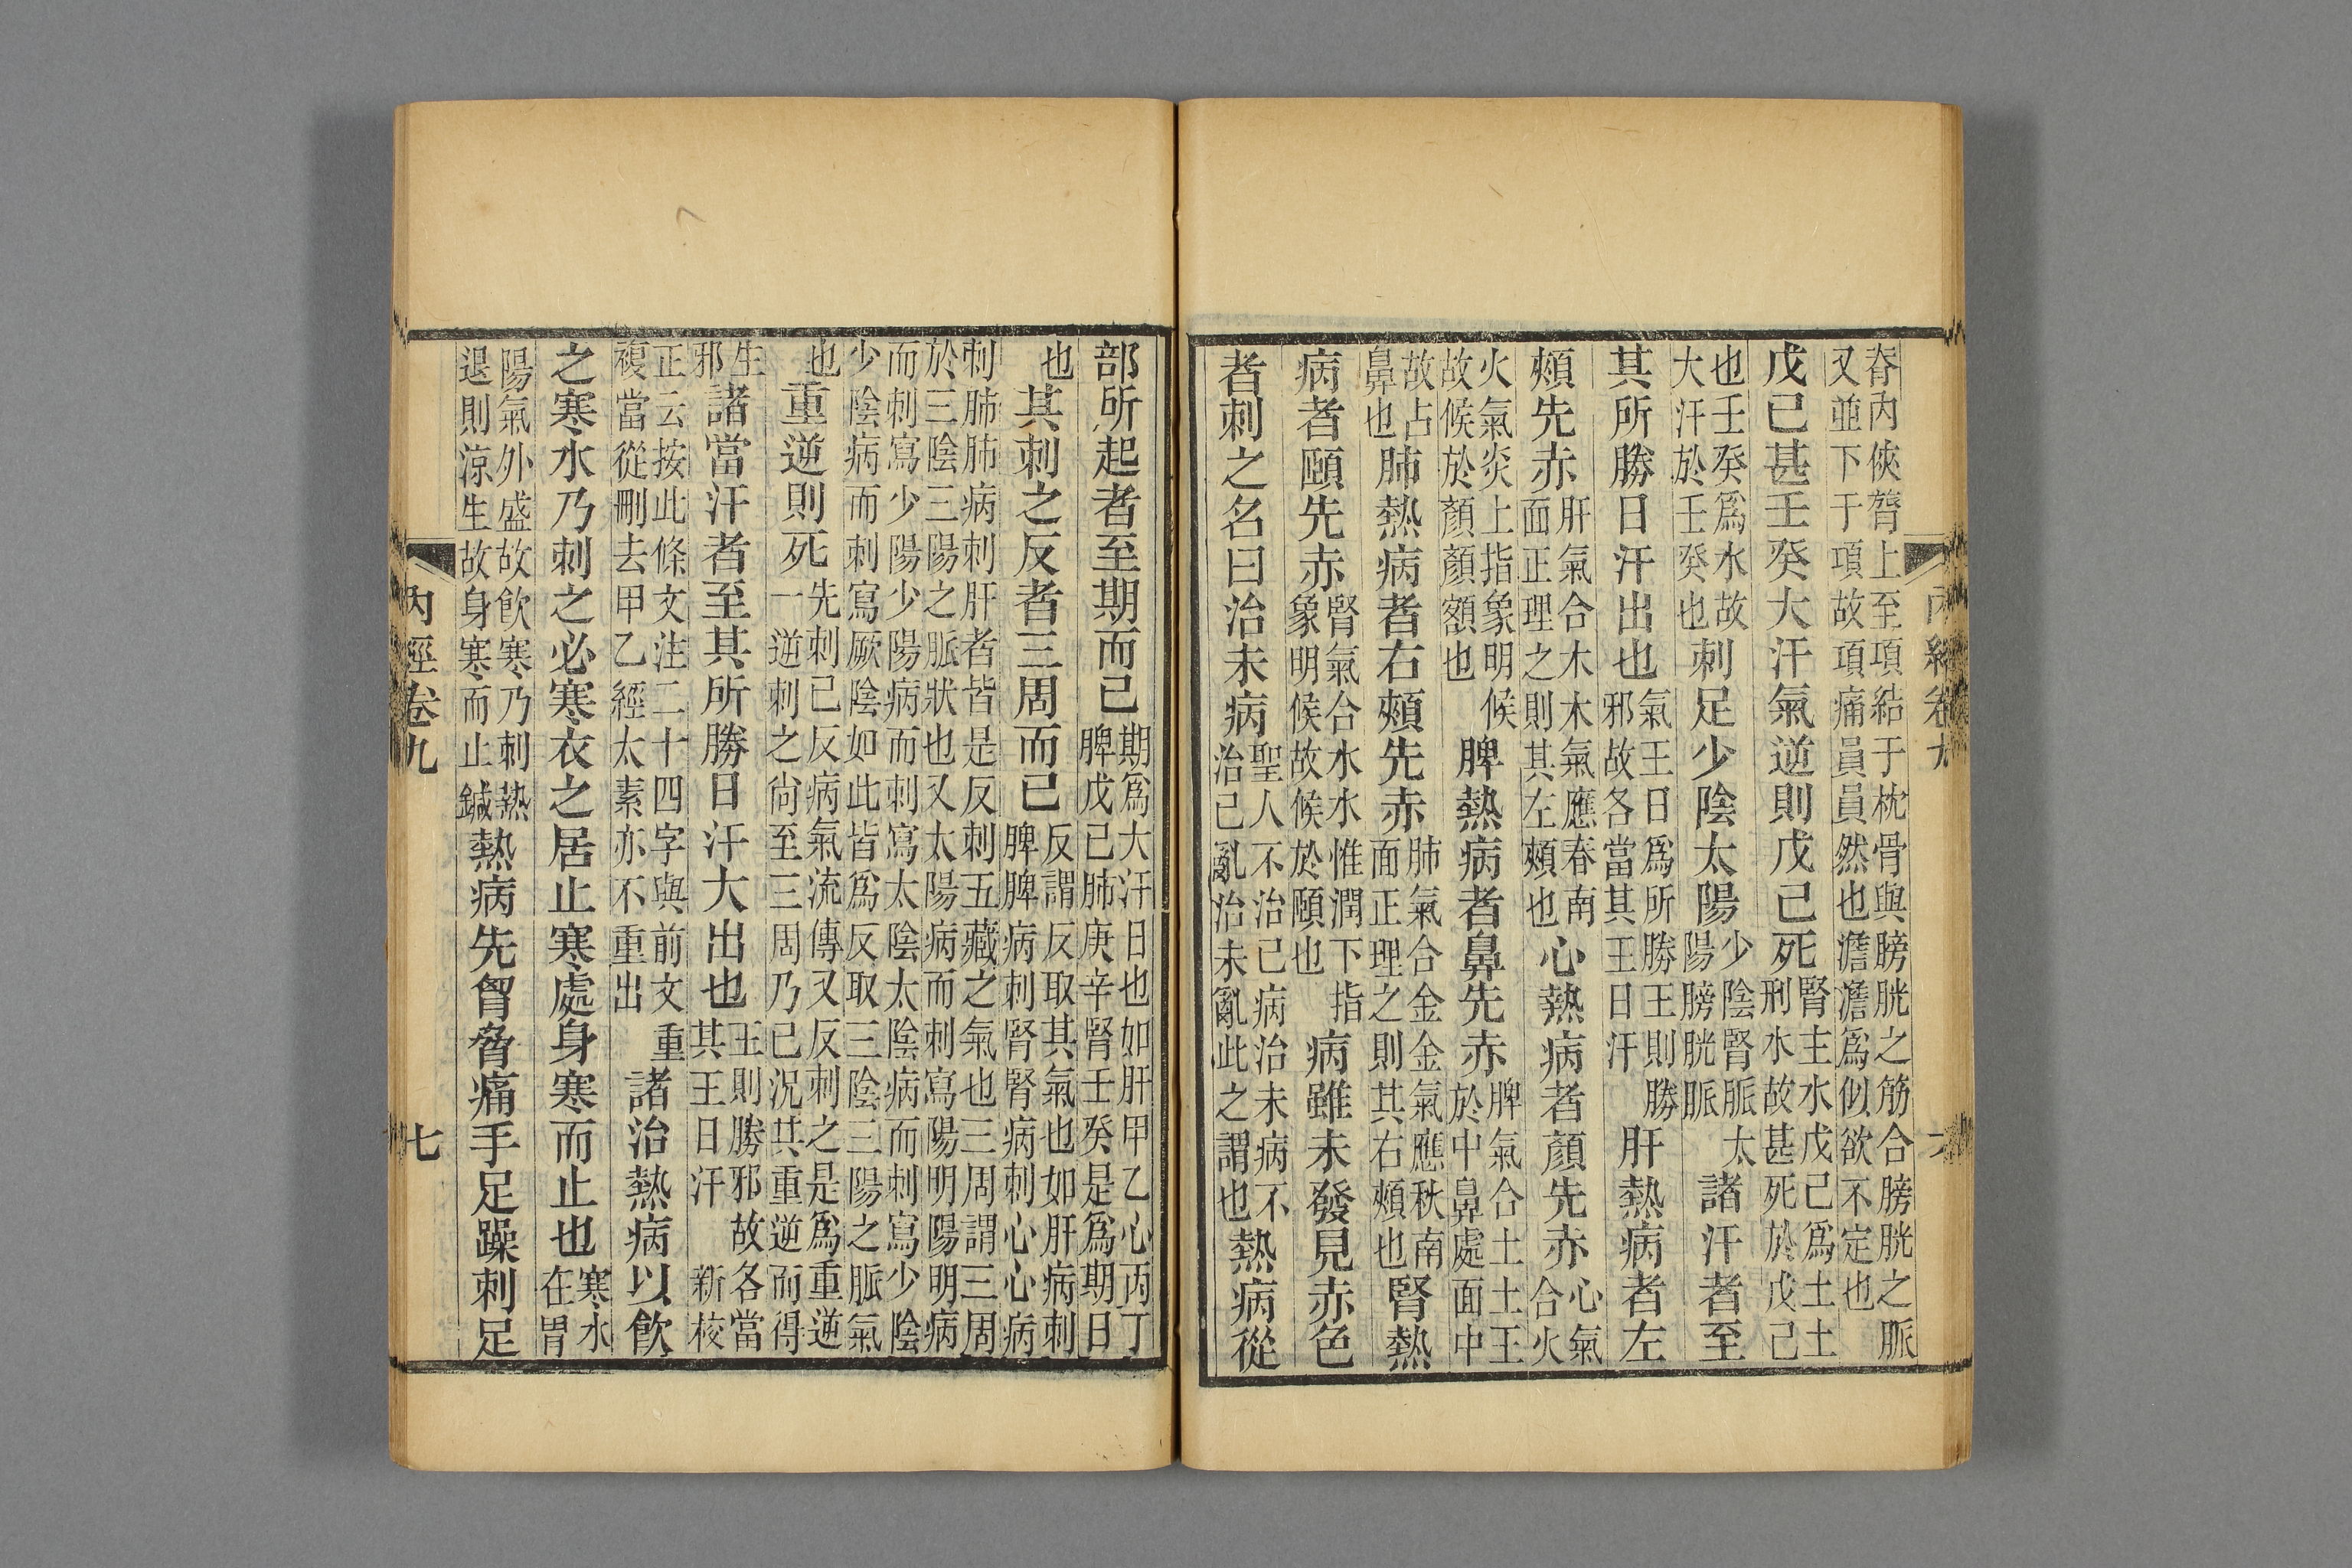 脊內俠膂上至項結于枕骨與膀胱之筋合膀胱之脈
又並下于項故項痛員員然也澹澹爲似欲不定也
戊己甚壬癸大汗氣逆則戊己死腎主水戊己爲土土刑水故甚死於戊己
也壬癸爲水故大汗於壬癸也刺足少陰太陽少陰腎脈太陽膀胱脈諸汗者至
其所勝日汗出也氣王日爲所勝王則勝邪故各當其王日汗肝熱病者左
頰先赤肝氣合木木氣應春南面正理之則其左頰也心熱病者顏先赤心氣合火
火氣炎上指象明候故候於顏顏額也脾熱病者鼻先赤脾氣合土土王於中鼻處面中
故占鼻也肺熱病者右頰先赤肺氣合金金氣應秋南面正理之則其右頰也腎熱
病者頤先赤腎氣合水水惟潤下指象明候故候於頤也病雖未發見赤色
者刺之名曰治未病聖人不治已病治未病不治已亂治未亂此之謂也熱病從
部所起者至期而已期爲大汗日也如肝甲乙心丙丁脾戊己肺庚辛腎壬癸是爲期日
也其刺之反者三周而已反謂反取其氣也如肝病刺脾脾病刺腎腎病刺心心病
刺肺肺病刺肝者皆是反刺五藏之氣也三周謂三周
於三陰三陽之脈狀也又太陽病而刺寫陽明陽明病
而刺寫少陽少陽病而刺寫太陰太陰病而刺寫少陰
少陰病而刺寫厥陰如此皆爲反取三陰三陽之脈氣
也重逆則死先刺已反病氣流傳又反刺之是爲重逆一逆刺之尙至三周乃已況其重逆而得
生邪諸當汗者至其所勝日汗大出也王則勝邪故各當其王日汗 新校
正云按此條文注二十四字與前文重複當從刪去甲乙經太素亦不重出諸治熱病以飮
之寒水乃刺之必寒衣之居止寒處身寒而止也寒水在胃
陽氣外盛故飮寒乃刺熱退則涼生故身寒而止鍼熱病先胷脅痛手足躁刺足
內經卷九 七